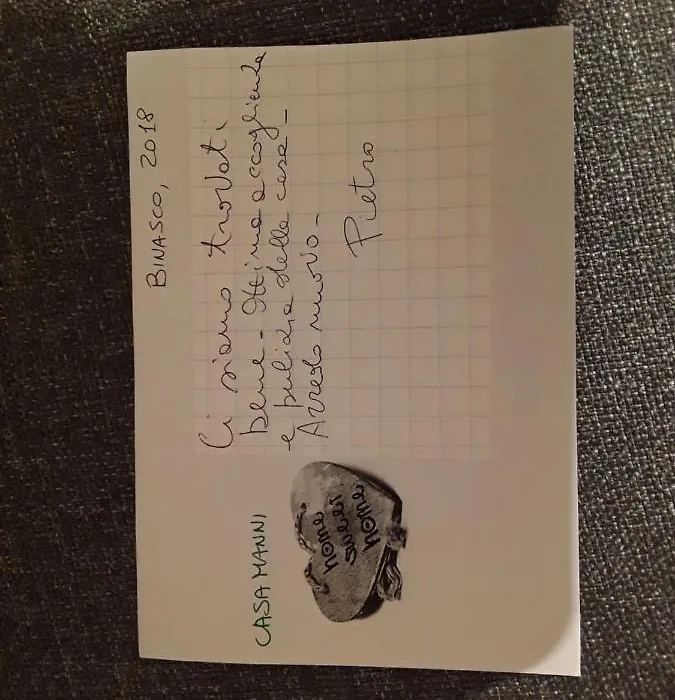 BINASCO, 2018
Ci siamo trovati
bene - Ottima accoglienza
e pulizia della casa -
Arredo nuovo -
Pietro
CASA MANNI
home
sweet
home